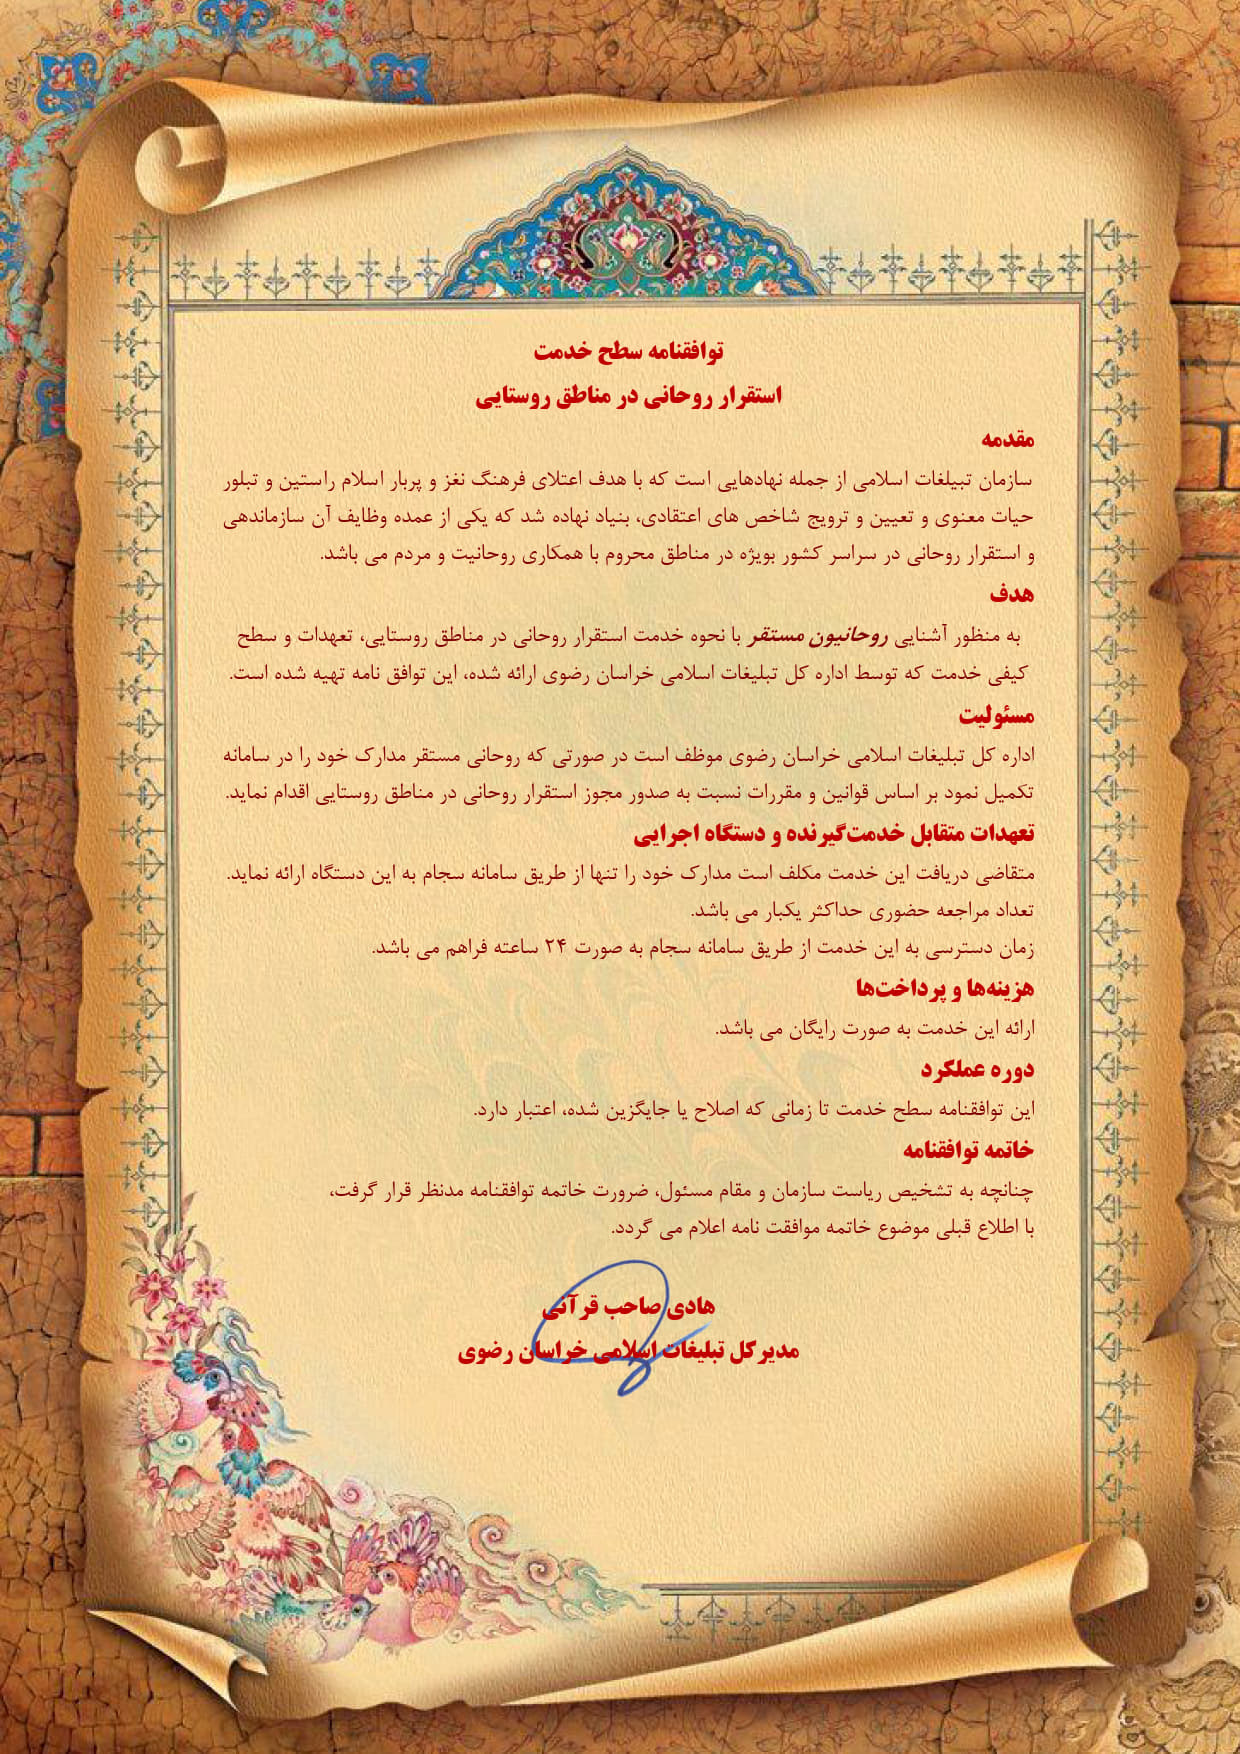 توافقنامه سطح خدمت
استقرار روحانی در مناطق روستایی
مقدمه
سازمان تبیلغات اسلامی از جمله نهادهایی است که با هدف اعتلای فرهنگ نغز و پربار اسلام راستین و تبلور
حیات معنوی و تعیین و ترویج شاخص های اعتقادی، بنیاد نهاده شد که یکی از عمده وظایف آن سازماندهی
و استقرار روحانی در سراسر کشور بویژه در مناطق محروم با همکاری روحانیت و مردم می باشد.
هدف
به منظور آشنایی روحانیون مستقر با نحوه خدمت استقرار روحانی در مناطق روستایی، تعهدات و سطح
کیفی خدمت که توسط اداره کل تبلیغات اسلامی خراسان رضوی ارائه شده، این توافق نامه تهیه شده است.
مسئولیت
اداره کل تبلیغات اسلامی خراسان رضوی موظف است در صورتی که روحانی مستقر مدارک خود را در سامانه
تکمیل نمود بر اساس قوانین و مقررات نسبت به صدور مجوز استقرار روحانی در مناطق روستایی اقدام نماید.
تعهدات متقابل خدمت‌گیرنده و دستگاه اجرایی
متقاضی دریافت این خدمت مکلف است مدارک خود را تنها از طریق سامانه سجام به این دستگاه ارائه نماید.
تعداد مراجعه حضوری حداکثر یکبار می باشد.
زمان دسترسی به این خدمت از طریق سامانه سجام به صورت ۲۴ ساعته فراهم می باشد.
هزینه‌ها و پرداخت‌ها
ارائه این خدمت به صورت رایگان می باشد.
دوره عملکرد
این توافقنامه سطح خدمت تا زمانی که اصلاح یا جایگزین شده، اعتبار دارد.
خاتمه توافقنامه
چنانچه به تشخیص ریاست سازمان و مقام مسئول، ضرورت خاتمه توافقنامه مدنظر قرار گرفت،
با اطلاع قبلی موضوع خاتمه موافقت نامه اعلام می گردد.
هادی صاحب قرآنی
مدیرکل تبلیغات اسلامی خراسان رضوی